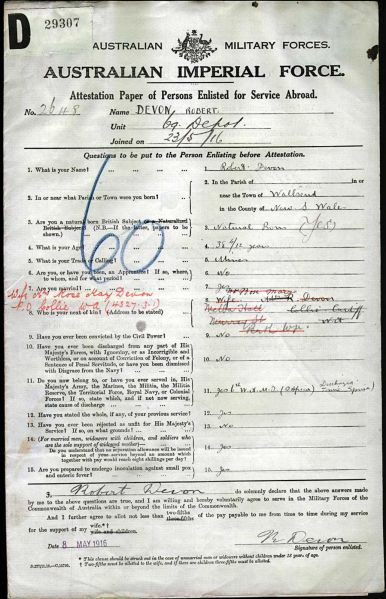 D
29307
AUSTRALIAN MILITARY FORCES.
AUSTRALIAN IMPERIAL FORCE.
Attestation Paper of Persons Enlisted for Service Abroad.
No. 2648 Name DEVON ROBERT.
Unit 69. Depot.
Joined on 23/5/16
Questions to be put to the Person Enlisting before Attestation.
60
1. What is your Name? 1. Robert Devon
2. In or near what Parish or Town were you born? 2. In the Parish of
near the Town of Wallsend
in the County of New S Wales
3. Are you a natural born British Subject or a Naturalized
British Subject? (N.B.—If the latter, papers to be
shown.) 3. Natural Born (Yes)
4. What is your Age? 4. years
5. What is your Trade or Calling? 5. Miner
6. Are you, or have you been, an Apprentice? If so, where,
to whom, and for what period? 6. No
7. Are you married? 7. Yes
Wife Mrs Rose May Devon
P.O. Collie W.A.
8. Who is your next of kin? (Address to be stated) 8. Wife Devon
Collie
Perth
9. Have you ever been convicted by the Civil Power? 9. No
10. Have you ever been discharged from any part of His
Majesty's Forces, with Ignominy, or as Incorrigible
and Worthless, or on account of Conviction of Felony, or of a
Sentence of Penal Servitude, or have you been dismissed
with Disgrace from the Navy? 10. No
11. Do you now belong to, or have you ever served in, His
Majesty's Army, the Marines, the Militia, the Militia
Reserve, the Territorial Force, Royal Navy, or Colonial
Forces? If so, state which, and if not now serving,
state cause of discharge 11. Yes
12. Have you stated the whole, if any, of your previous service? 12. Yes
13. Have you ever been rejected as unfit for His Majesty's
Service? If so, on what grounds? 13. No
14. (For married men, widowers with children, and soldiers who
are the sole support of widowed mother)—
Do you understand that no separation allowance will be issued
in respect of your service beyond an amount which
together with pay would reach eight shillings per day? 14. Yes
15. Are you prepared to undergo inoculation against small pox
and enteric fever? 15. Yes
I, Robert Devon do solemnly declare that the above answers made
by me to the above questions are true, and I am willing and hereby voluntarily agree to serve in the Military Forces of the
Commonwealth of Australia within or beyond the limits of the Commonwealth.
And I further agree to allot not less than two-fifths
three-fifths of the pay payable to me from time to time during my service
for the support of my wife.*†
wife and children.
Date 8 MAY 1916
R Devon
Signature of person enlisted.
* This clause should be struck out in the case of unmarried men or widowers without children under 18 years of age.
† Two-fifths must be allotted to the wife, and if there are children three-fifths must be allotted.